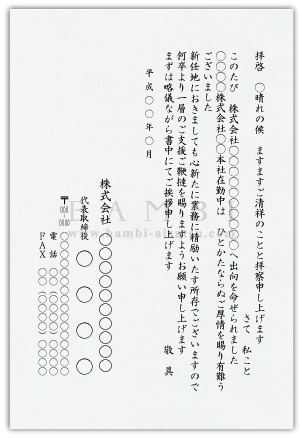 拝啓　〇晴れの候　ますますご清祥のことと拝察申し上げます
さて　私こと
このたび　株式会社〇〇〇〇〇〇〇へ出向を命ぜられました
〇〇〇〇株式会社〇〇本社在勤中は　ひとかたならぬご厚情を賜り有難う
ございました
新任地におきましても心新たに業務に精励いたす所存でございますので
何卒より一層のご支援ご鞭撻を賜りますようお願い申し上げます
まずは略儀ながら書中にてご挨拶申し上げます
敬具
平成〇〇年〇月
株式会社〇〇〇〇〇
代表取締役　〇〇〇〇
〒000-0000
電話
FAX
BAMBI